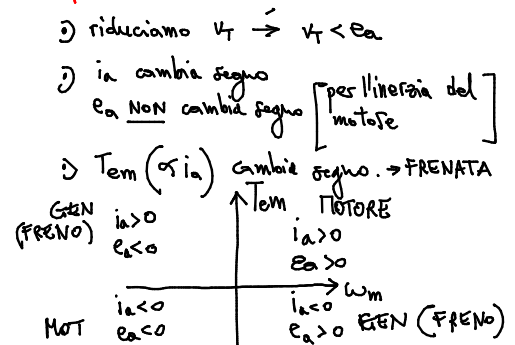 •) riduciamo v_T → v_T < e_a
•) i_a cambia segno
e_a NON cambia segno [per l'inerzia del motore]
•) T_em (α i_a) cambia segno. → FRENATA
T_em
GEN (FRENO) i_a>0 e_a<0
MOTORE i_a>0 e_a>0
ω_m
MOT i_a<0 e_a<0
i_a<0 e_a>0 GEN (FRENO)